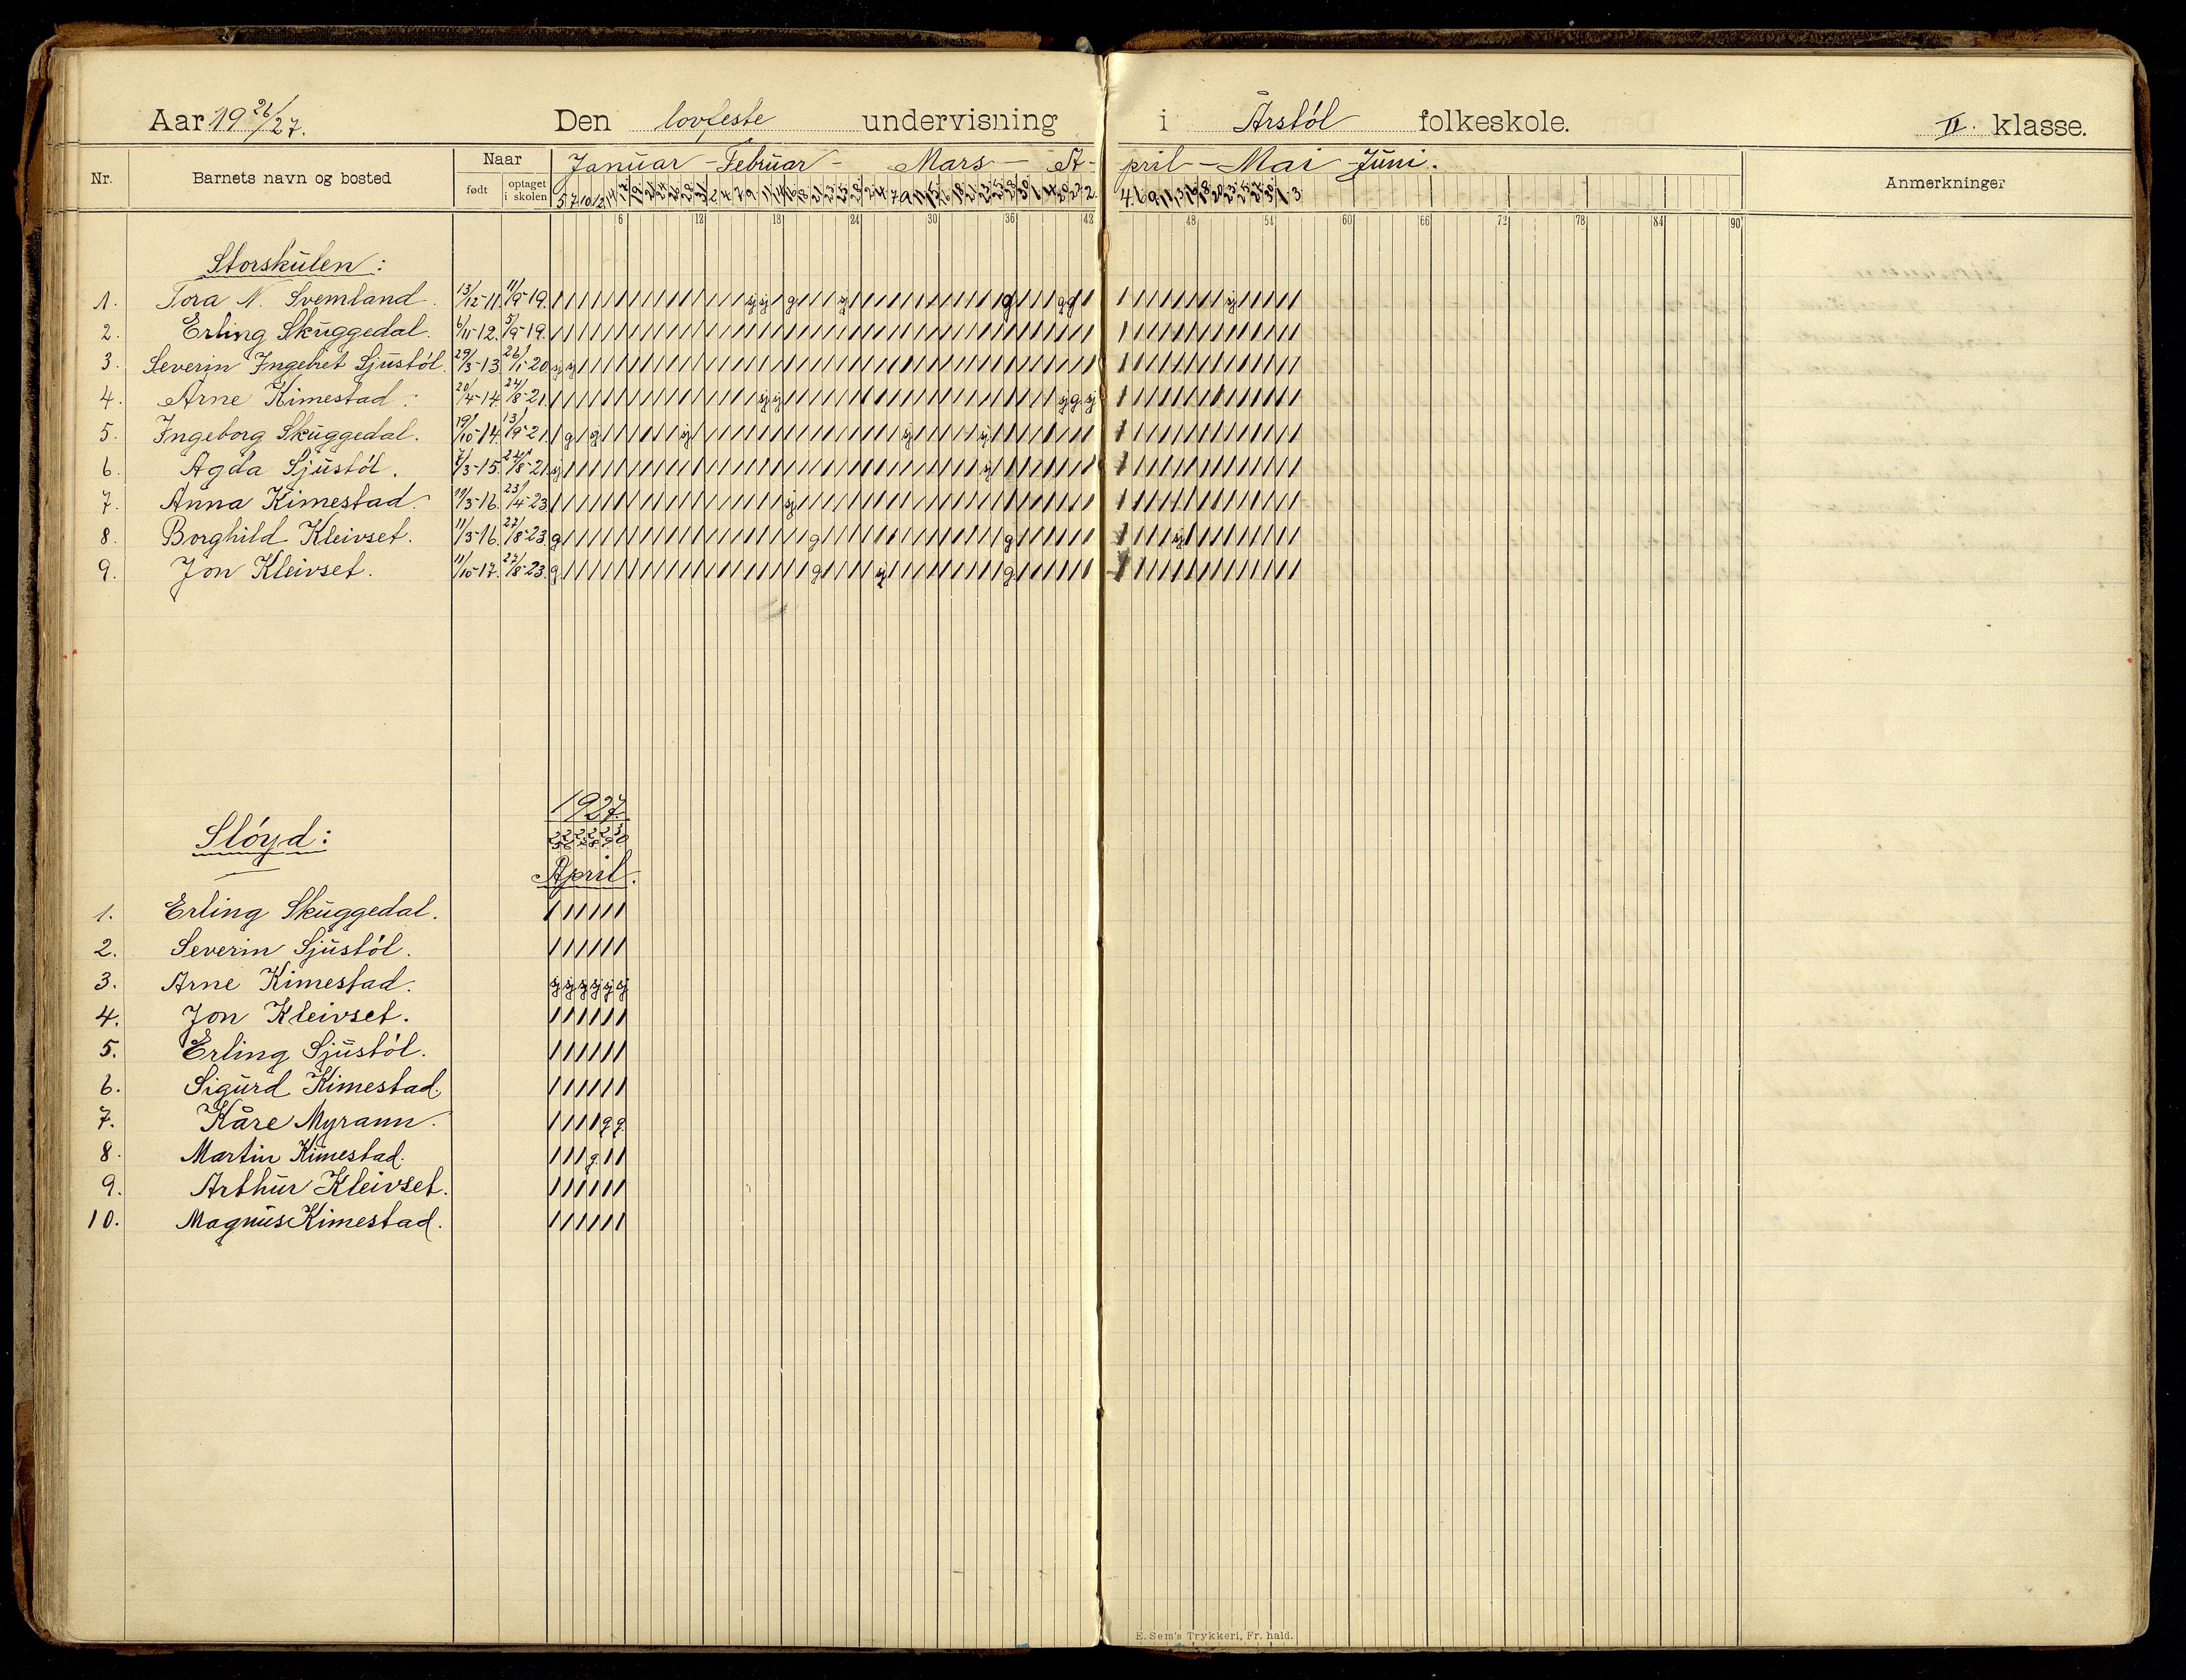 Aar 19 26/27. Den lovfeste undervisning i Årstøl folkeskole. II. klasse.
Nr. Barnets navn og bosted Naar født optaget i skolen Januar - Februar - Mars - April - Mai - Juni. Anmerkninger
6 12 18 24 30 36 42 48 54 60 66 72 78 84 90
Storskulen:
1. Tora N. Svemland. 13/12-11. 11/9-19.
2. Erling Skuggedal. 6/11-12. 5/9-19.
3. Severin Ingebret Sjustøl. 29/3-13 26/1-20
4. Arne Kimestad. 20/4-14. 24/8-21.
5. Ingeborg Skuggedal. 19/10-14. 13/9-21.
6. Agda Sjustøl. 7/3-15. 24/8-21.
7. Anna Kimestad. 19/3-16. 23/4-23.
8. Borghild Kleivset. 11/3-16. 27/8-23.
9. Jon Kleivset. 11/10-17. 27/8-23.
1927.
Sløyd:
April.
1. Erling Skuggedal. / / / / / /
2. Severin Sjustøl. / / / / / /
3. Arne Kimestad. sj sj sj sj sj sj
4. Jon Kleivset. / / / / / /
5. Erling Sjustøl. / / / / / /
6. Sigurd Kimestad. / / / / / /
7. Kåre Myrann. / / / / g g
8. Martin Kimestad. / / / g / /
9. Arthur Kleivset. / / / / / /
10. Magnus Kimestad. / / / / / /
E. Sem's Trykkeri, Fr. hald.